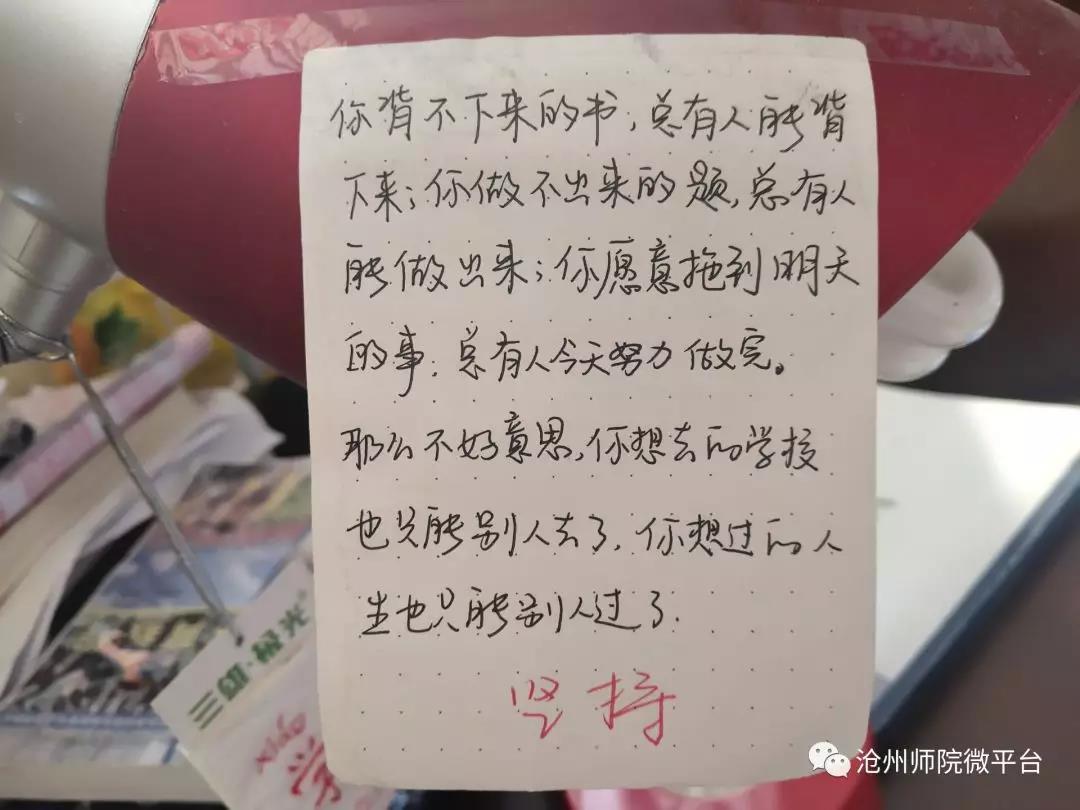 你背不下来的书,总有人能背
下来;你做不出来的题,总有人
能做出来;你愿意拖到明天
的事.总有人今天努力做完。
那么不好意思,你想去的学校
也只能别人去了.你想过的人
生也只能别人过了.
坚持
三雄·极光
xiǎo
学
沧州师院微平台